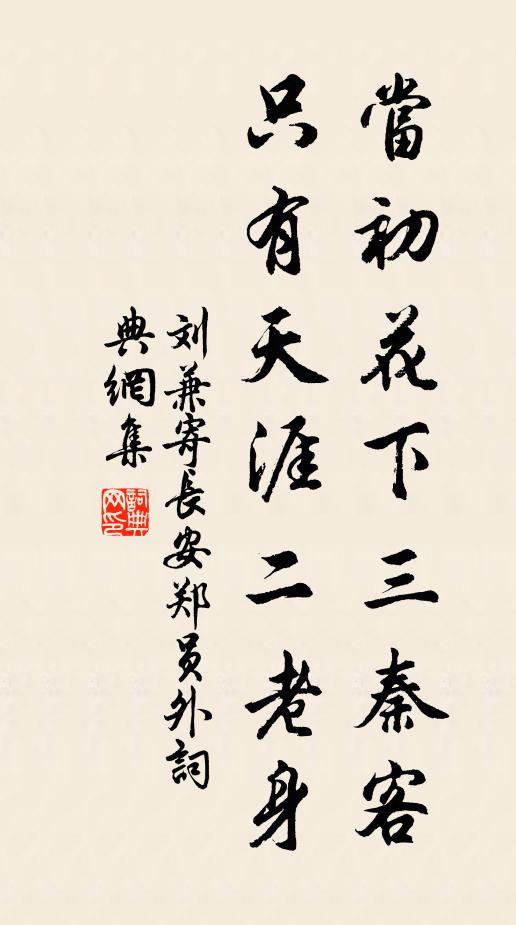 當初花下三秦客
只有天涯二老身
刘兼寄長安郑员外詞
典網集
詞典
网印